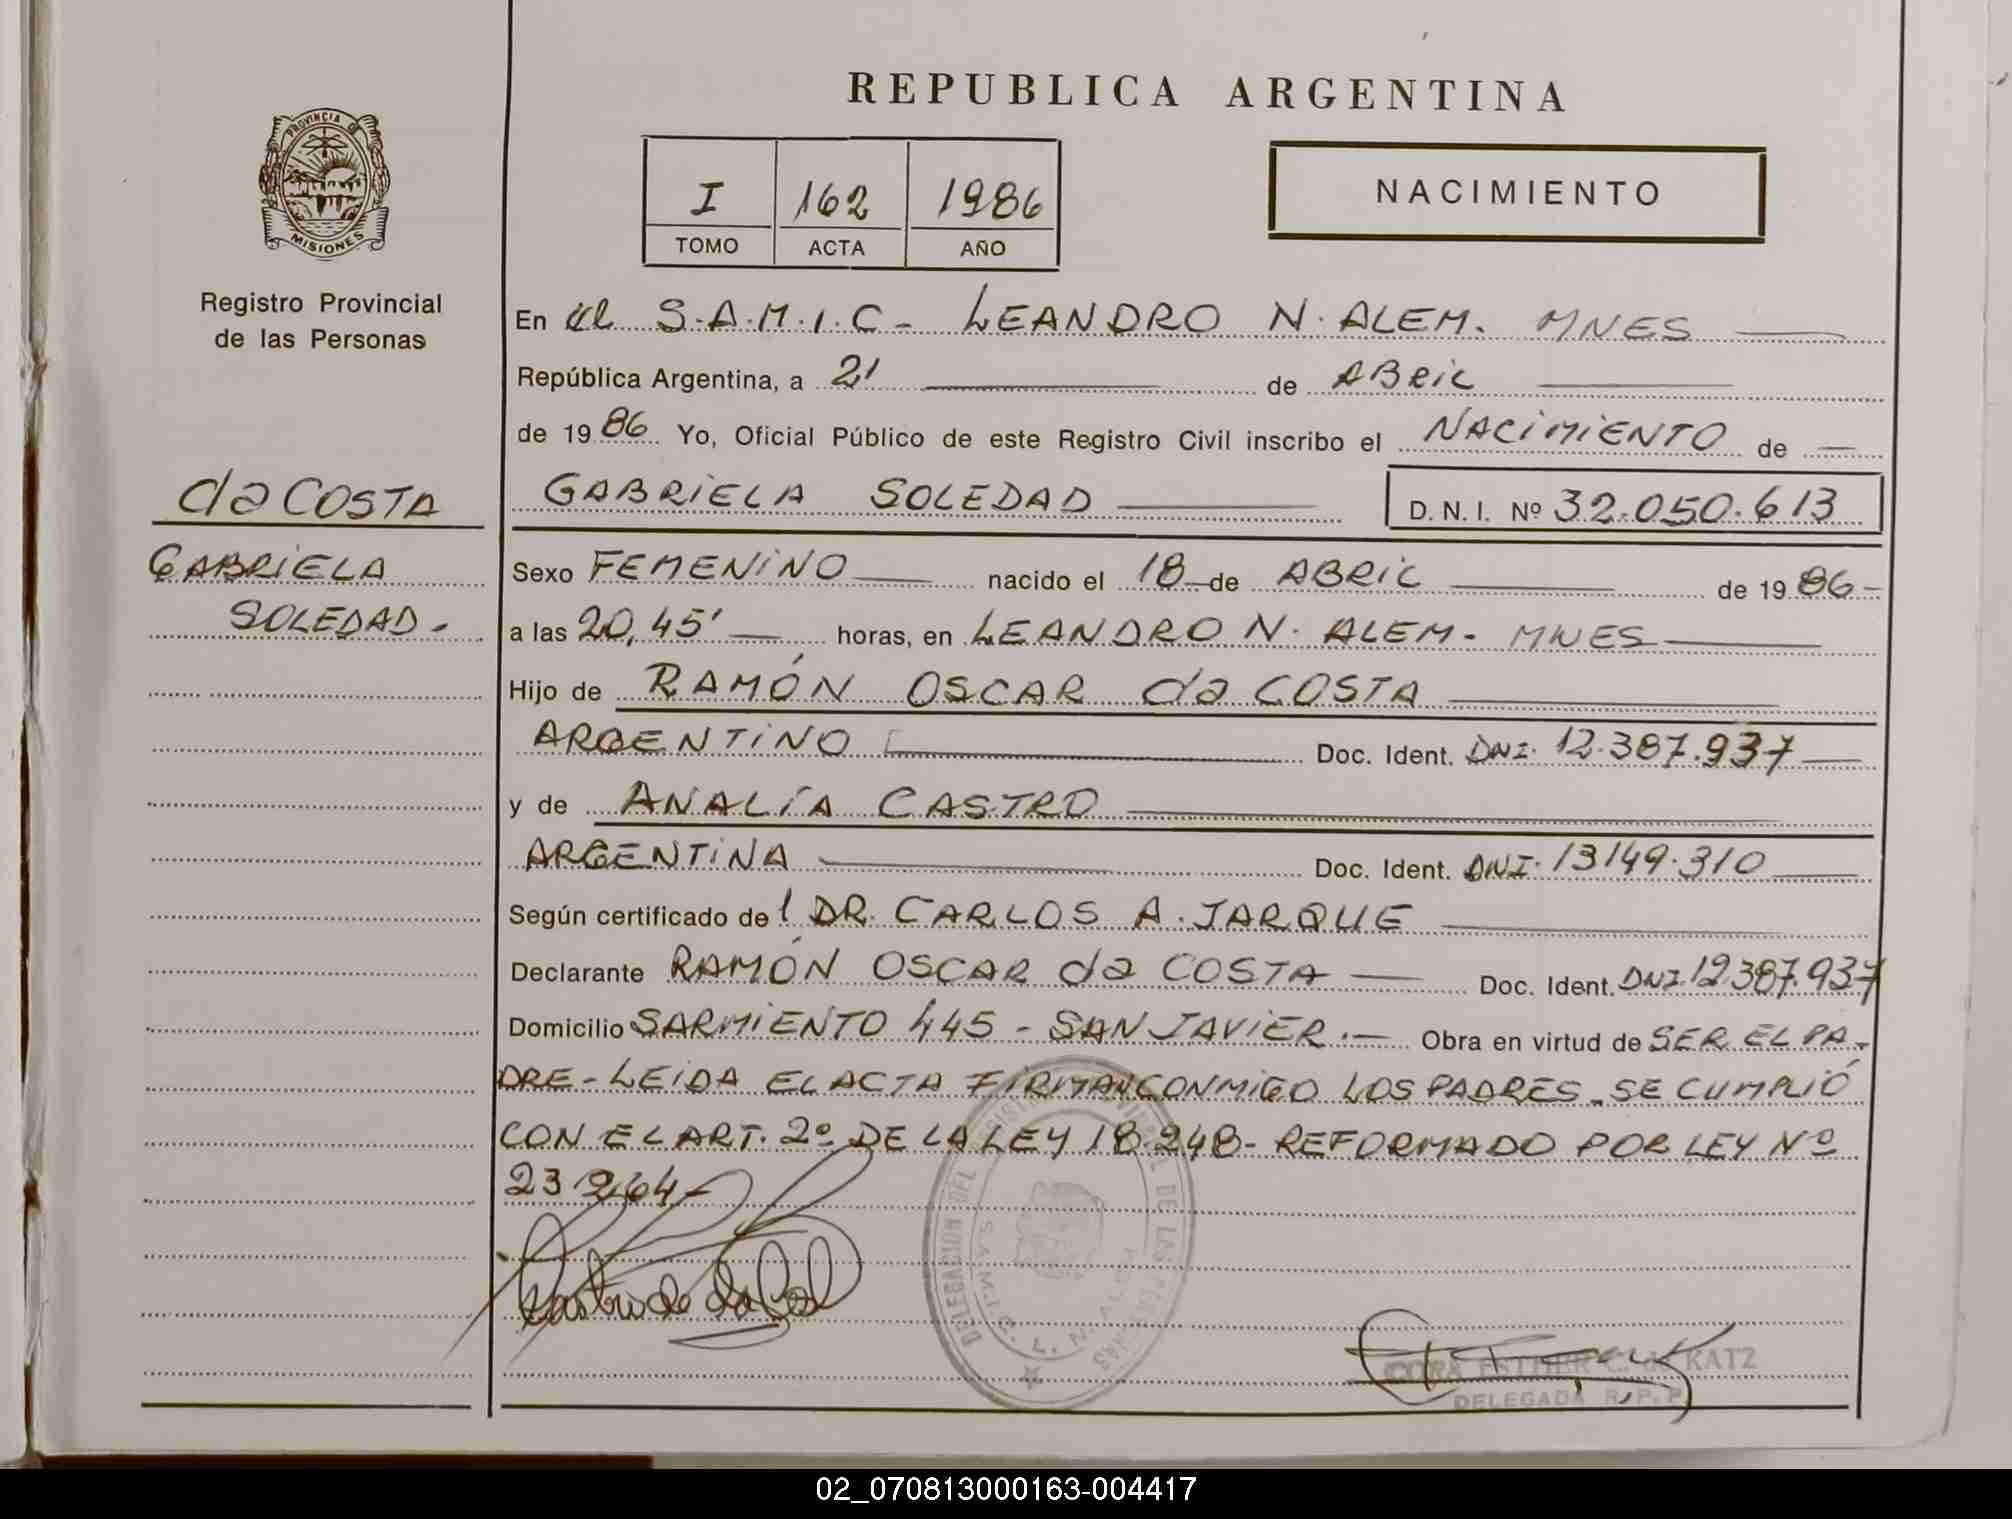 REPUBLICA ARGENTINA
PROVINCIA DE
MISIONES
Registro Provincial
de las Personas
I 162 1986
TOMO ACTA AÑO
NACIMIENTO
En el S.A.M.I.C- LEANDRO N. ALEM. MNES
República Argentina, a 21 de ABRIL
de 1986 Yo, Oficial Público de este Registro Civil inscribo el NACIMIENTO de
da COSTA
GABRIELA SOLEDAD D. N. I. Nº 32.050.613
GABRIELA
SOLEDAD.
Sexo FEMENINO nacido el 18 de ABRIL de 1986
a las 20,45' horas, en LEANDRO N. ALEM- MNES
Hijo de RAMÓN OSCAR da COSTA
ARGENTINO Doc. Ident. DNI. 12.387.937
y de ANALÍA CASTRO
ARGENTINA Doc. Ident. DNI. 13149.310
Según certificado del DR. CARLOS A. JARQUE
Declarante RAMÓN OSCAR da COSTA Doc. Ident. DNI.12387.937
Domicilio SARMIENTO 445 - SAN JAVIER.- Obra en virtud de SER EL PA-
DRE - LEIDA EL ACTA FIRMAN CONMIGO LOS PADRES. SE CUMPLIÓ
CON EL ART. 2º DE LA LEY 18.248- REFORMADO POR LEY Nº
23264-
Castro de da Cos
DELEGACION DEL
DE LAS
S.A.M.I.C. L. N. ALEM
CORA ESTHER C. de KATZ
DELEGADA R. P. P.
02_070813000163-004417